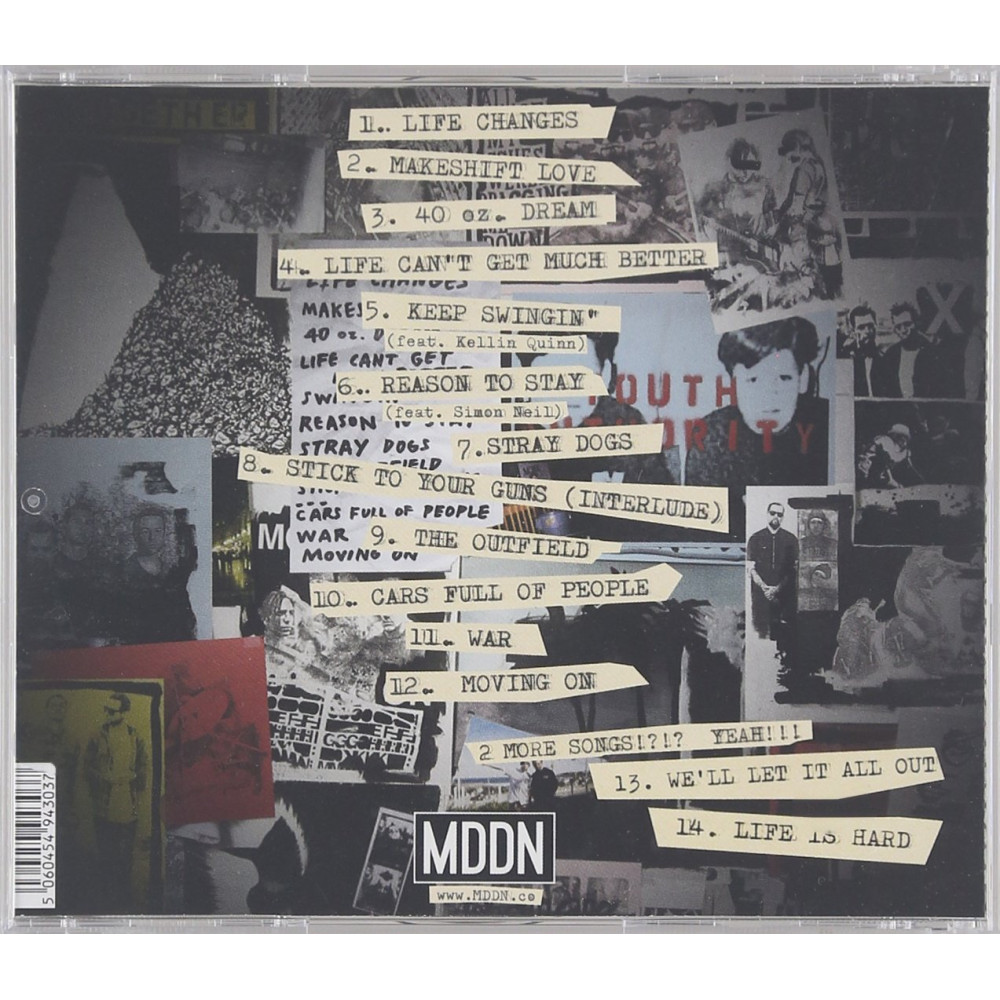 1. LIFE CHANGES
2. MAKESHIFT LOVE
3. 40 oz. DREAM
4. LIFE CAN'T GET MUCH BETTER
LIFE CHANGES
MAKES
5. KEEP SWINGIN'
40 oz.
(feat. Kellin Quinn)
LIFE CANT GET
6. REASON TO STAY
(feat. Simon Neil)
REASON TO STAY
STRAY DOGS
7. STRAY DOGS
YOUTH
AUTHORITY
8. STICK TO YOUR GUNS (INTERLUDE)
CARS FULL OF PEOPLE
WAR
9. THE OUTFIELD
MOVING ON
10. CARS FULL OF PEOPLE
11. WAR
12. MOVING ON
2 MORE SONGS!?!? YEAH!!!
13. WE'LL LET IT ALL OUT
14. LIFE IS HARD
MDDN
www.MDDN.co
5 060454 943037